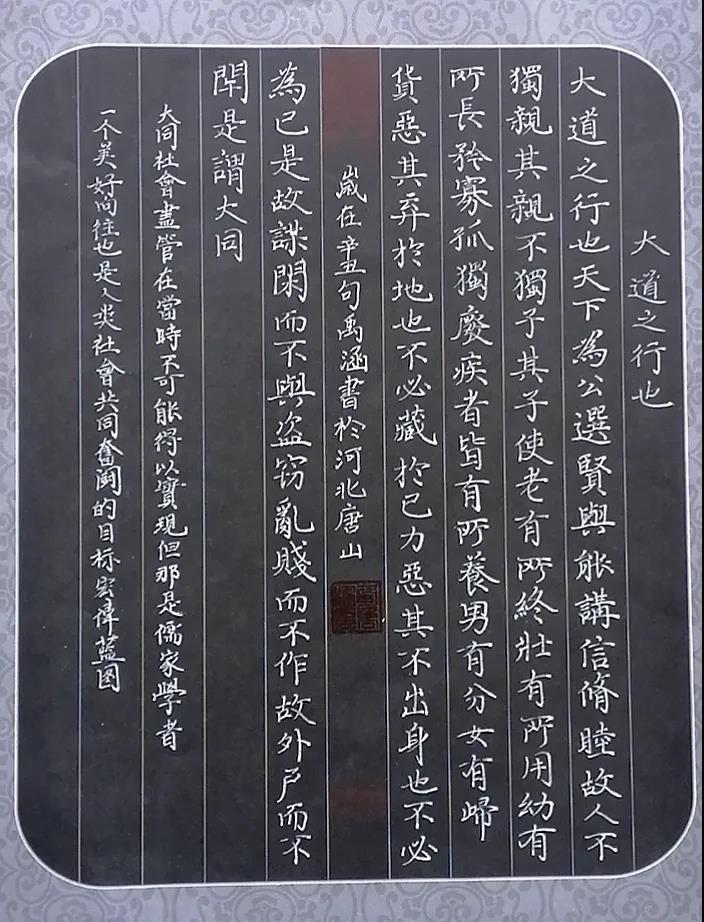 大道之行也
大道之行也天下為公選賢與能講信脩睦故人不
獨親其親不獨子其子使老有所終壯有所用幼有
所長矜寡孤獨廢疾者皆有所養男有分女有歸
貨惡其弃於地也不必藏於己力惡其不出身也不必
歲在辛丑句禹涵書於河北唐山
為己是故謀閑而不與盗窃亂賤而不作故外户而不
閈是謂大同
大同社會盡管在當時不可能得以實現但那是儒家學者
一个美好向往也是人类社會共同奮鬪的目标宏偉藍图